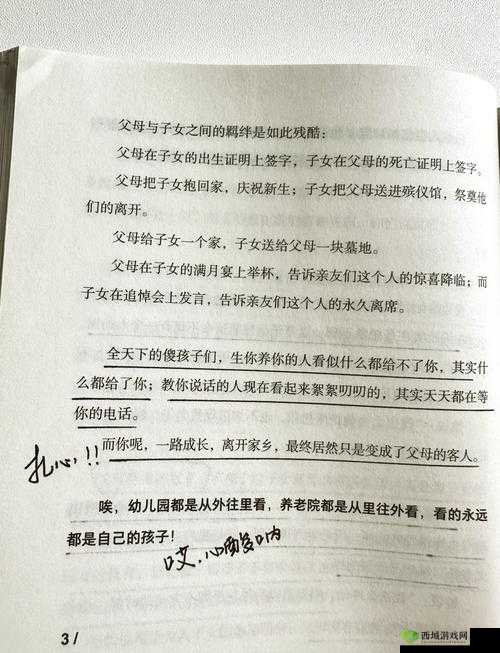 父母与子女之间的羁绊是如此残酷：
父母在子女的出生证明上签字，子女在父母的死亡证明上签字。
父母把子女抱回家，庆祝新生；子女把父母送进殡仪馆，祭奠他
们的离开。
父母给子女一个家，子女送给父母一块墓地。
父母在子女的满月宴上举杯，告诉亲友们这个人的惊喜降临；而
子女在追悼会上发言，告诉亲友们这个人的永久离席。
全天下的傻孩子们，生你养你的人看似什么都给不了你，其实什
么都给了你；教你说话的人现在看起来絮絮叨叨的，其实天天都在等
你的电话。
扎心，!!
而你呢，一路成长，离开家乡，最终居然只是变成了父母的客人。
唉，幼儿园都是从外往里看，养老院都是从里往外看，看的永远
都是自己的孩子！
哎，心酸呐
3/
西域游戏网